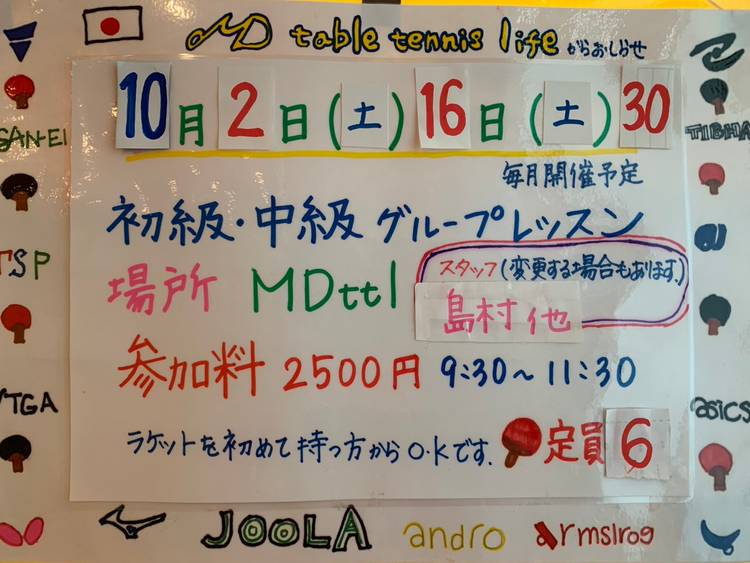 MD table tennis lifeからおしらせ
10月2日(土)16日(土)30
毎月開催予定
初級・中級グループレッスン
場所 MDttl
スタッフ(変更する場合もあります。)
島村 他
参加料 2500円 9:30~11:30
ラケットを初めて持つ方からO.Kです.
定員6
SAN-EI
TSP
VTGA
TIBHAR
asics
JOOLA andro armslrog